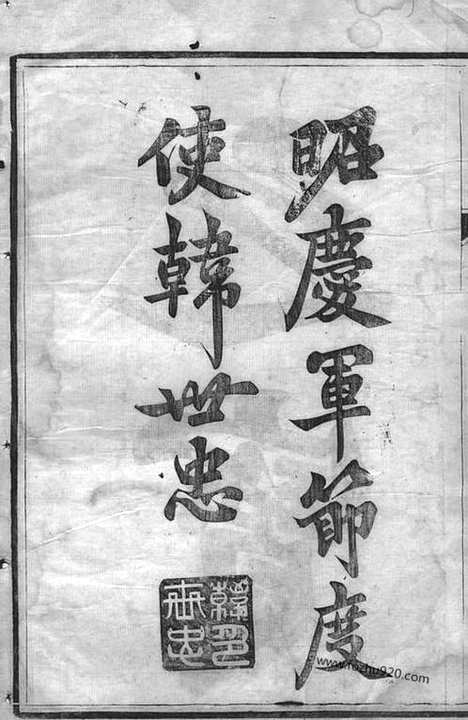 昭慶軍節度
使韓世忠
韓世忠印
www.fozhu920.com